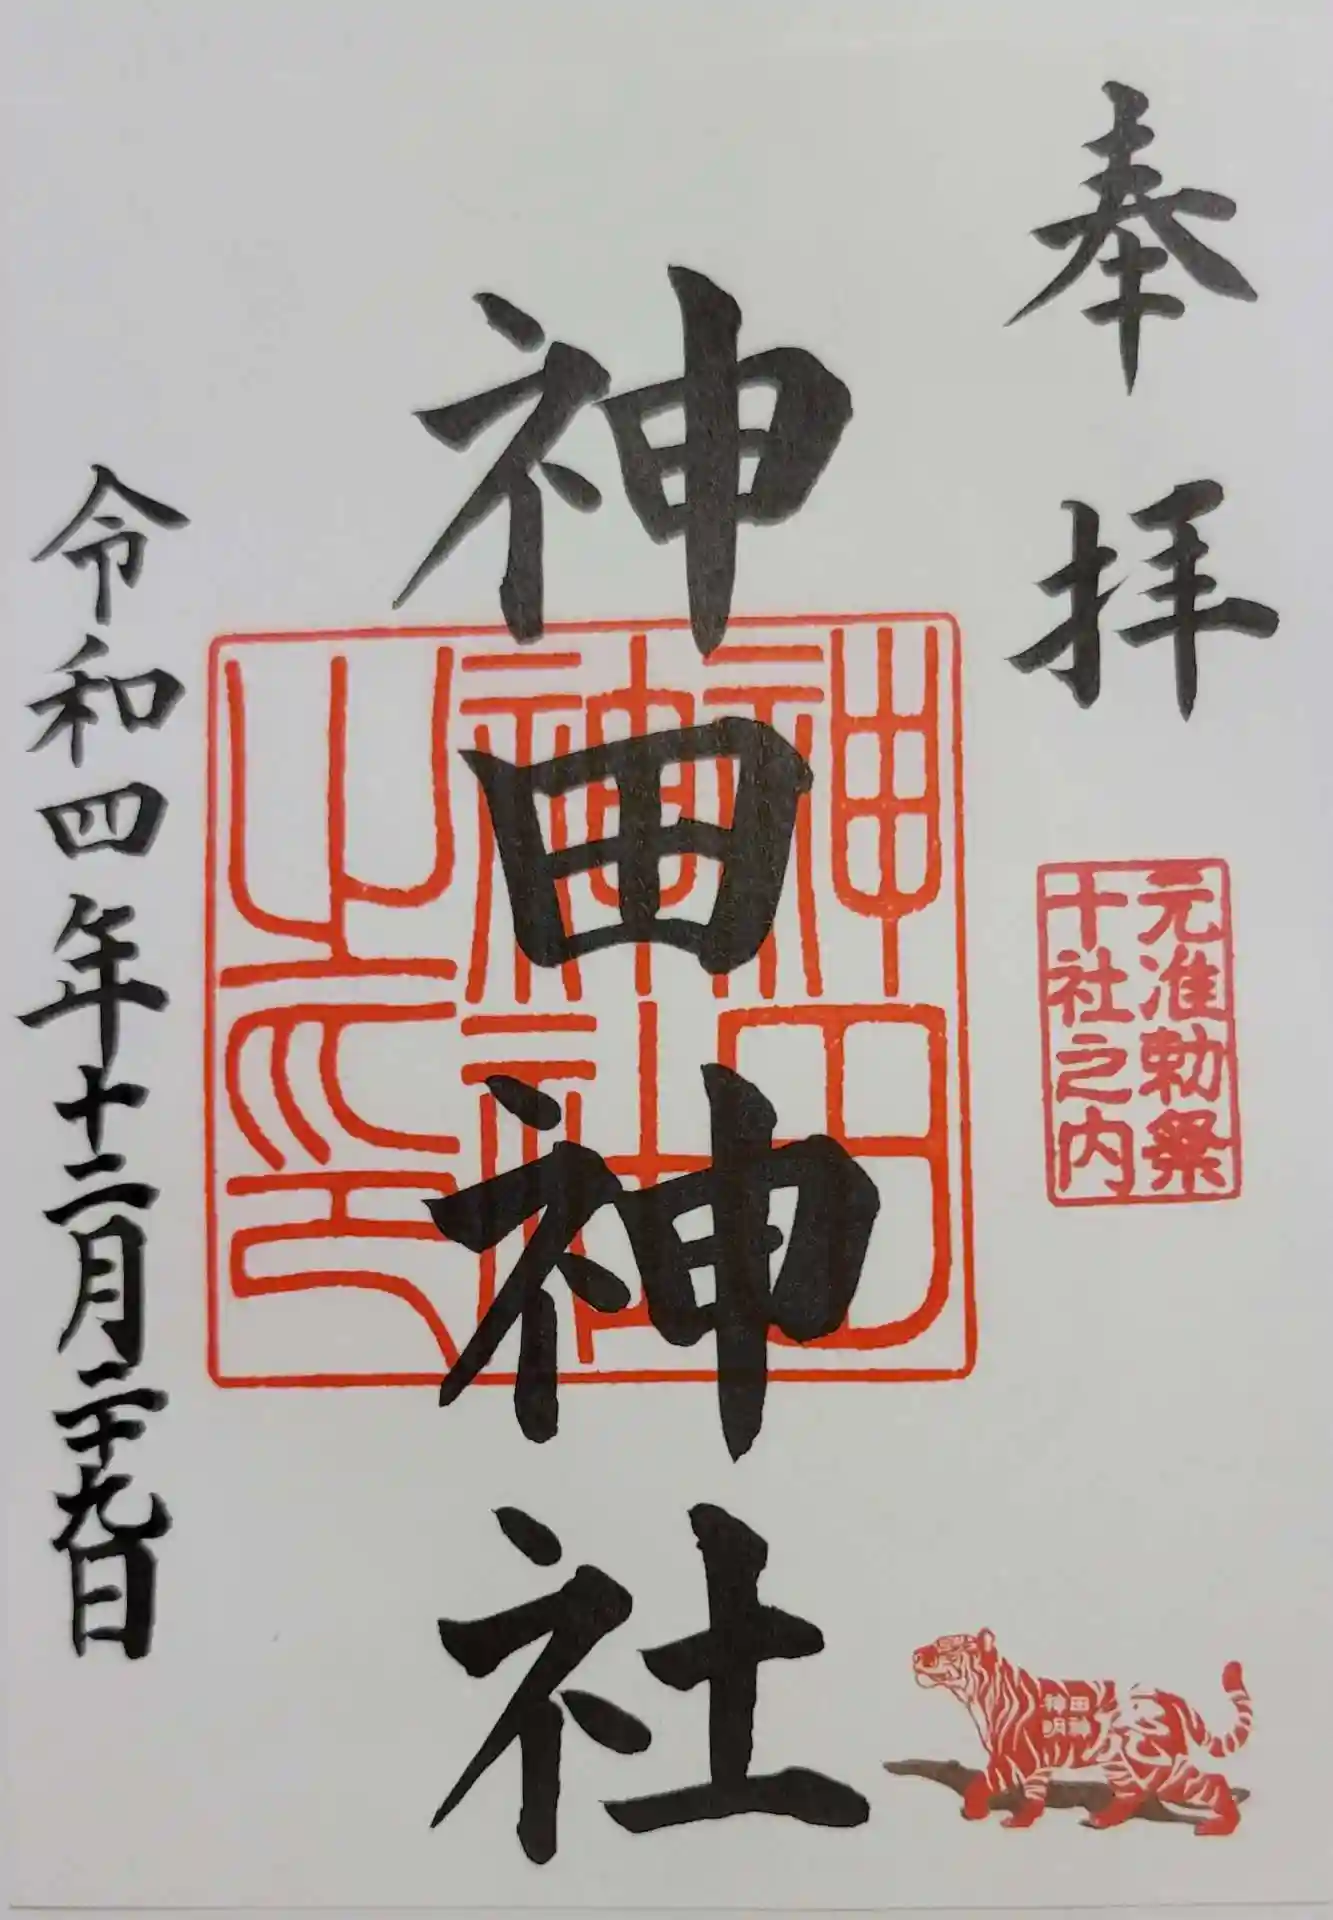 奉拝
元准勅祭
十社之内
神田神社
神田神社之印
令和四年十二月二十九日